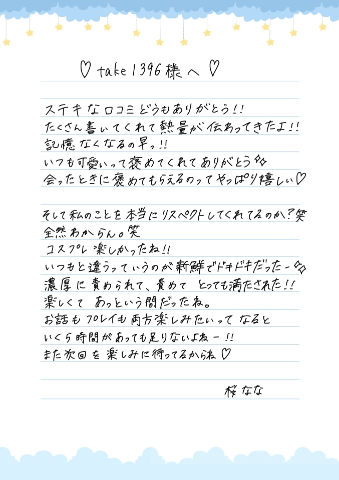 ♡ take1396様へ ♡
ステキな口コミどうもありがとう!!
たくさん書いてくれて熱量が伝わってきたよ!!
記憶なくなるの早ッ!!
いつも可愛いって褒めてくれてありがとう✨
会ったときに褒めてもらえるのってやっぱり嬉しい♡
そして私のことを本当にリスペクトしてくれてるのか?笑
全然わからん。笑
コスプレ楽しかったね!!
いつもと違うっていうのが新鮮でドキドキだったー✨
濃厚に責められて、責めて とっても満たされた!!
楽しくて あっという間だったね。
お話もプレイも両方楽しみたいって なると
いくら時間があっても足りないよねー!!
また次回を楽しみに待ってるからね♡
桜なな